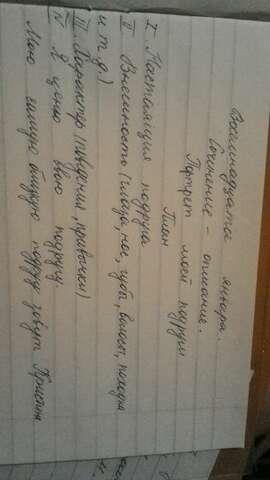 Восемнадцатое января.
Сочинение - описание.
Портрет моей подруги
План
I Настоящая подруга
II Внешность (глаза, нос, губы, волосы, походка
и т д.)
III. Характер (поведение, привычки)
IV Я ценю свою подругу
Мою самую близкую подругу зовут Кристина